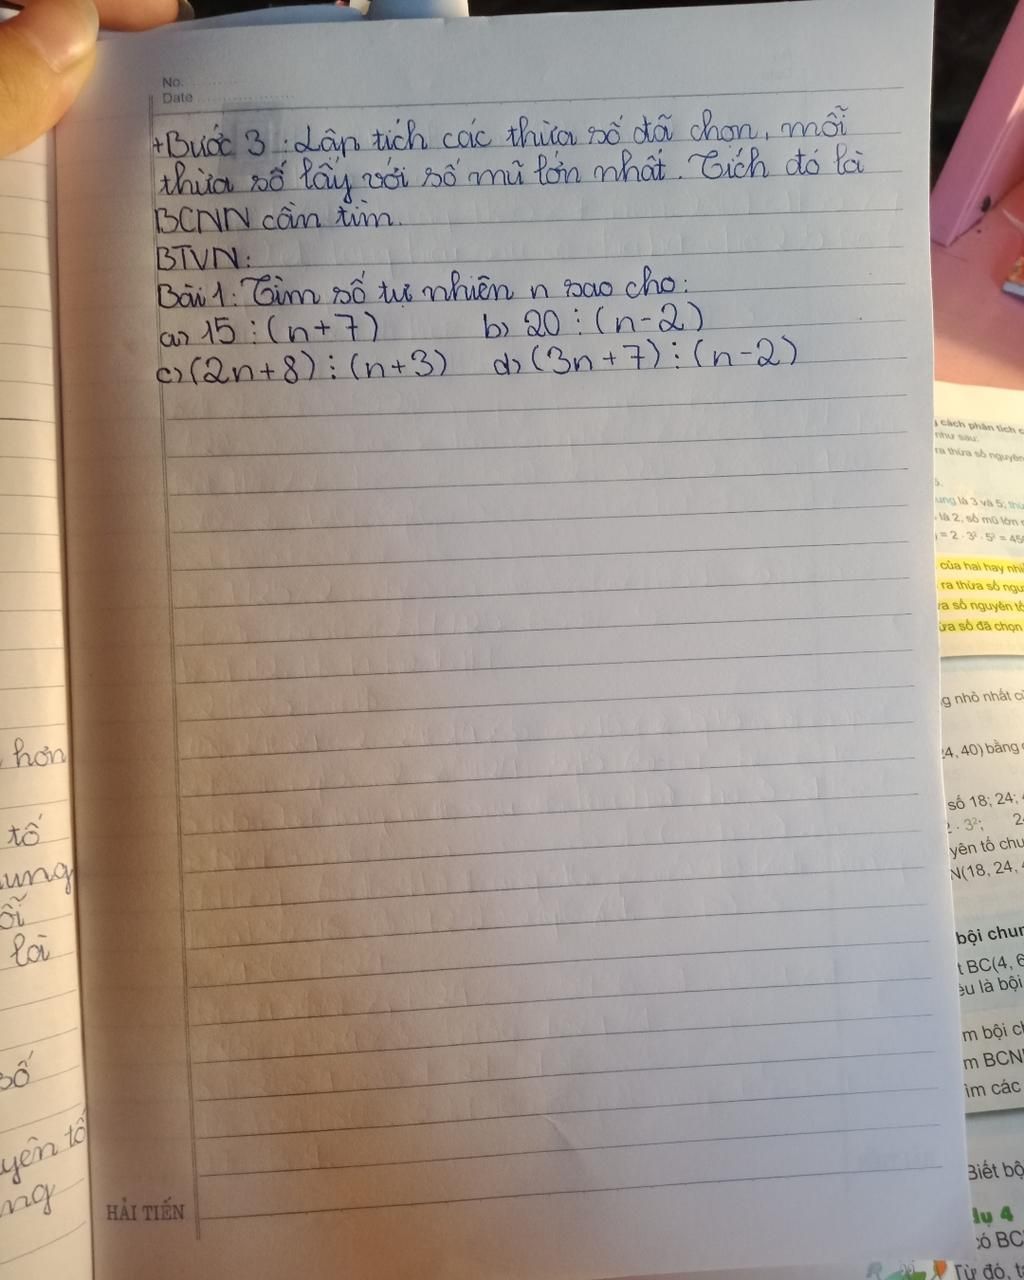 No.
Date
+Bước 3: Lập tích các thừa số đã chọn, mỗi
thừa số lấy với số mũ lớn nhất. Tích đó là
BCNN cần tìm.
BTVN:
Bài 1: Tìm số tự nhiên n sao cho:
a) 15 ⋮ (n+7) b) 20 ⋮ (n-2)
c) (2n+8) ⋮ (n+3) d) (3n+7) ⋮ (n-2)
HẢI TIẾN
hơn
tố
ung
ỗi
là
số
yên tố
ng
cách phân tích
như sau:
ra thừa số nguyên
ung là 3 và 5; thừ
là 2, số mũ lớn
= 2 · 3² · 5² = 450
của hai hay nhi
ra thừa số ngu
ừa số nguyên tố
ừa số đã chọn
g nhỏ nhất
24, 40) bằng
số 18; 24;
· 3²;
yên tố chu
N(18, 24,
bội chun
t BC(4, 6
ều là bội
m bội ch
m BCN
ìm các
Biết bộ
dụ 4
có BC
Từ đó, t